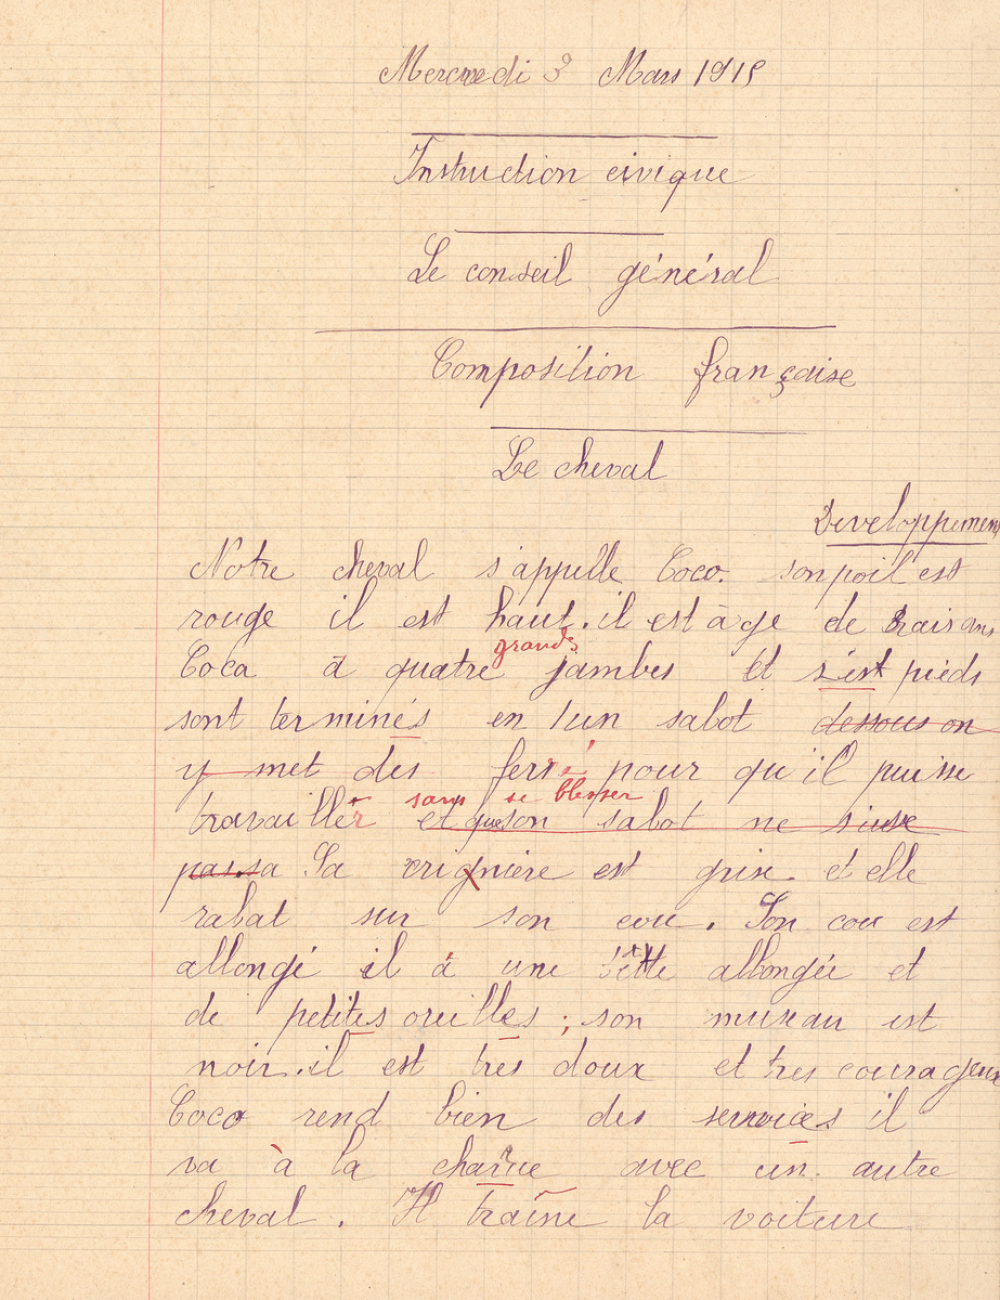 Mercredi 3 Mars 1915
Instruction civique
Le conseil général
Composition française
Le cheval
Developpement
Notre cheval s'appelle Coco. son poil est
rouge il est haut. il est àge de trais ans
grands
Coco à quatre jambes et s'est pieds
sont terminés en l'un sabot dessous on
y met des ferré pour qu'il puisse
sans se blesser
travailler et que son sabot ne s'iuse
pas sa Sa crignière est grise et elle
rabat sur son cou. Son cou est
allongé il à une tête allongée et
de petites oreilles ; son museau est
noir. il est très doux et tres courageux
Coco rend bien des services il
va à la charue avec un autre
cheval. Il traîne la voiture